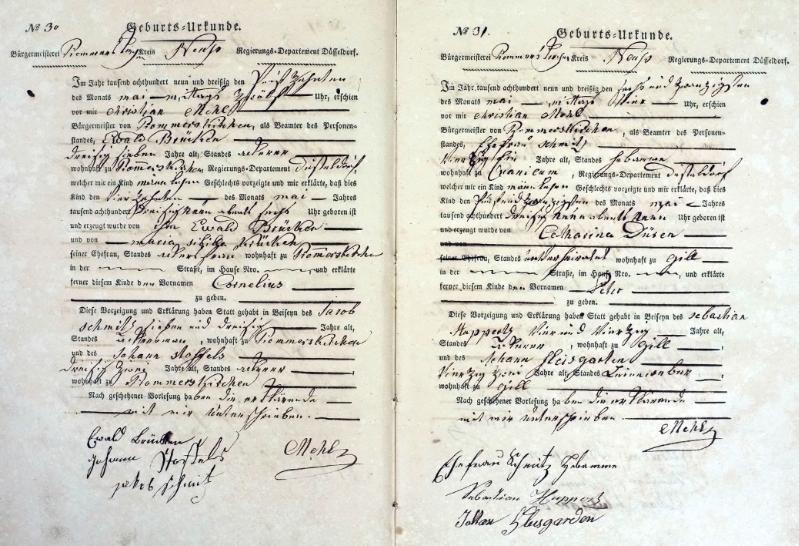 No 30
Geburts-Urkunde.
Bürgermeisterei Rommerskirchen Kreis Neuss Regierungs-Departement Düsseldorf.
Im Jahr tausend achthundert neun und dreißig den
des Monats mai — m. tags Uhr, erschien
vor mir Christian Mehl
Bürgermeister von Rommerskirchen, als Beamter des Personen-
standes, Ewald Brücken
dreisig sieben Jahre alt, Standes ackerer
wohnhaft zu Rommerskirchen Regierungs-Departement Düsseldorf,
welcher mir ein Kind maennlichen Geschlechts vorzeigte und mir erklärte, daß dies
Kind den des Monats mai — Jahres
tausend achthundert dreisig abents sechs Uhr geboren ist
und erzeugt wurde von ihm Ewald Brücken
und von maria Brücken
seiner Ehefrau, Standes ackersfrau wohnhaft zu Rommerskirchen
in der — Straße, im Hause Nro. — und erklärte
ferner diesem Kinde den Vornamen Cornelius
zu geben.
Diese Vorzeigung und Erklärung haben Statt gehabt in Beiseyn des Jacob
schmitz sieben und dreisig Jahre alt,
Standes, wohnhaft zu Rommerskirchen
und des Johann Stoffels
dreisig Jahre alt, Standes ackerer
wohnhaft zu Rommerskirchen
Nach geschehener Vorlesung haben die erklärende
mit mir unterschrieben.
Ewald Brücken
Johann Stoffels
jakob schmitz
CMehl
No 31.
Geburts-Urkunde.
Bürgermeisterei Rommerskirchen Kreis Neuss Regierungs-Departement Düsseldorf.
Im Jahr tausend achthundert neun und dreißig den sechs und zwanzigsten
des Monats mai — m. tags Uhr, erschien
vor mir Christian Mehl
Bürgermeister von Rommerskirchen, als Beamter des Personen-
standes, Ehefrau schmitz
Jahre alt, Standes hebamme
wohnhaft zu, Regierungs-Departement Düsseldorf
welcher mir ein Kind maennlichen Geschlechts vorzeigte und mir erklärte, daß dies
Kind den fünf und zwanzigsten des Monats mai — Jahres
tausend achthundert dreisig abents Uhr geboren ist
und erzeugt wurde von Catharina Düsen
und von
seiner Ehefrau, Standes unverheirathet wohnhaft zu Gill
in der — Straße, im Hause Nro. — und erklärte
ferner diesem Kinde den Vornamen Peter
zu geben.
Diese Vorzeigung und Erklärung haben Statt gehabt in Beiseyn des sebastian
Huppertz vier und vierzig Jahre alt,
Standes ackerer, wohnhaft zu Gill
und des Johann Fleisgarten
vierzig Jahre alt, Standes
wohnhaft zu Gill
Nach geschehener Vorlesung haben die erklärende
mit mir unterschrieben
CMehl
Ehefrau Schmitz Hebamme
Sebastian Huppertz
Johan